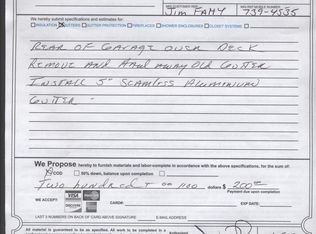 JIM FAHY
739-4535
We hereby submit specifications and estimates for:
INSULATION GUTTERS GUTTER PROTECTION FIREPLACES SHOWER ENCLOSURES CLOSET SYSTEMS
REAR OF GARAGE OVER DECK
REMOVE AND HAUL AWAY OLD GUTTER
INSTALL 5" SEAMLESS ALUMINUM
GUTTER -
We Propose hereby to furnish materials and labor-complete in accordance with the above specifications, for the sum of:
COD 50% down, balance upon completion
TWO hundred + 00/100 dollars $ 200.00
WE ACCEPT: VISA DISCOVER CARD#: EXP. DATE:
LAST 3 NUMBERS ON BACK OF CARD ABOVE SIGNATURE E-MAIL ADDRESS
All material is guaranteed to be as specified. All work to be completed in a